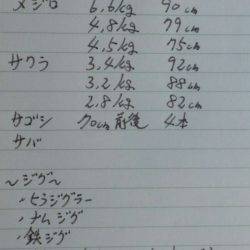 メジロ 6,6kg 90cm
4,8kg 79cm
4,5kg 75cm
サワラ 3,4kg 92cm
3,2kg 88cm
2,8kg 82cm
サゴシ 70cm前後 4本
サバ
〜ジグ〜
・ヒラジグラー
・ナムジグ
・鉄ジグ